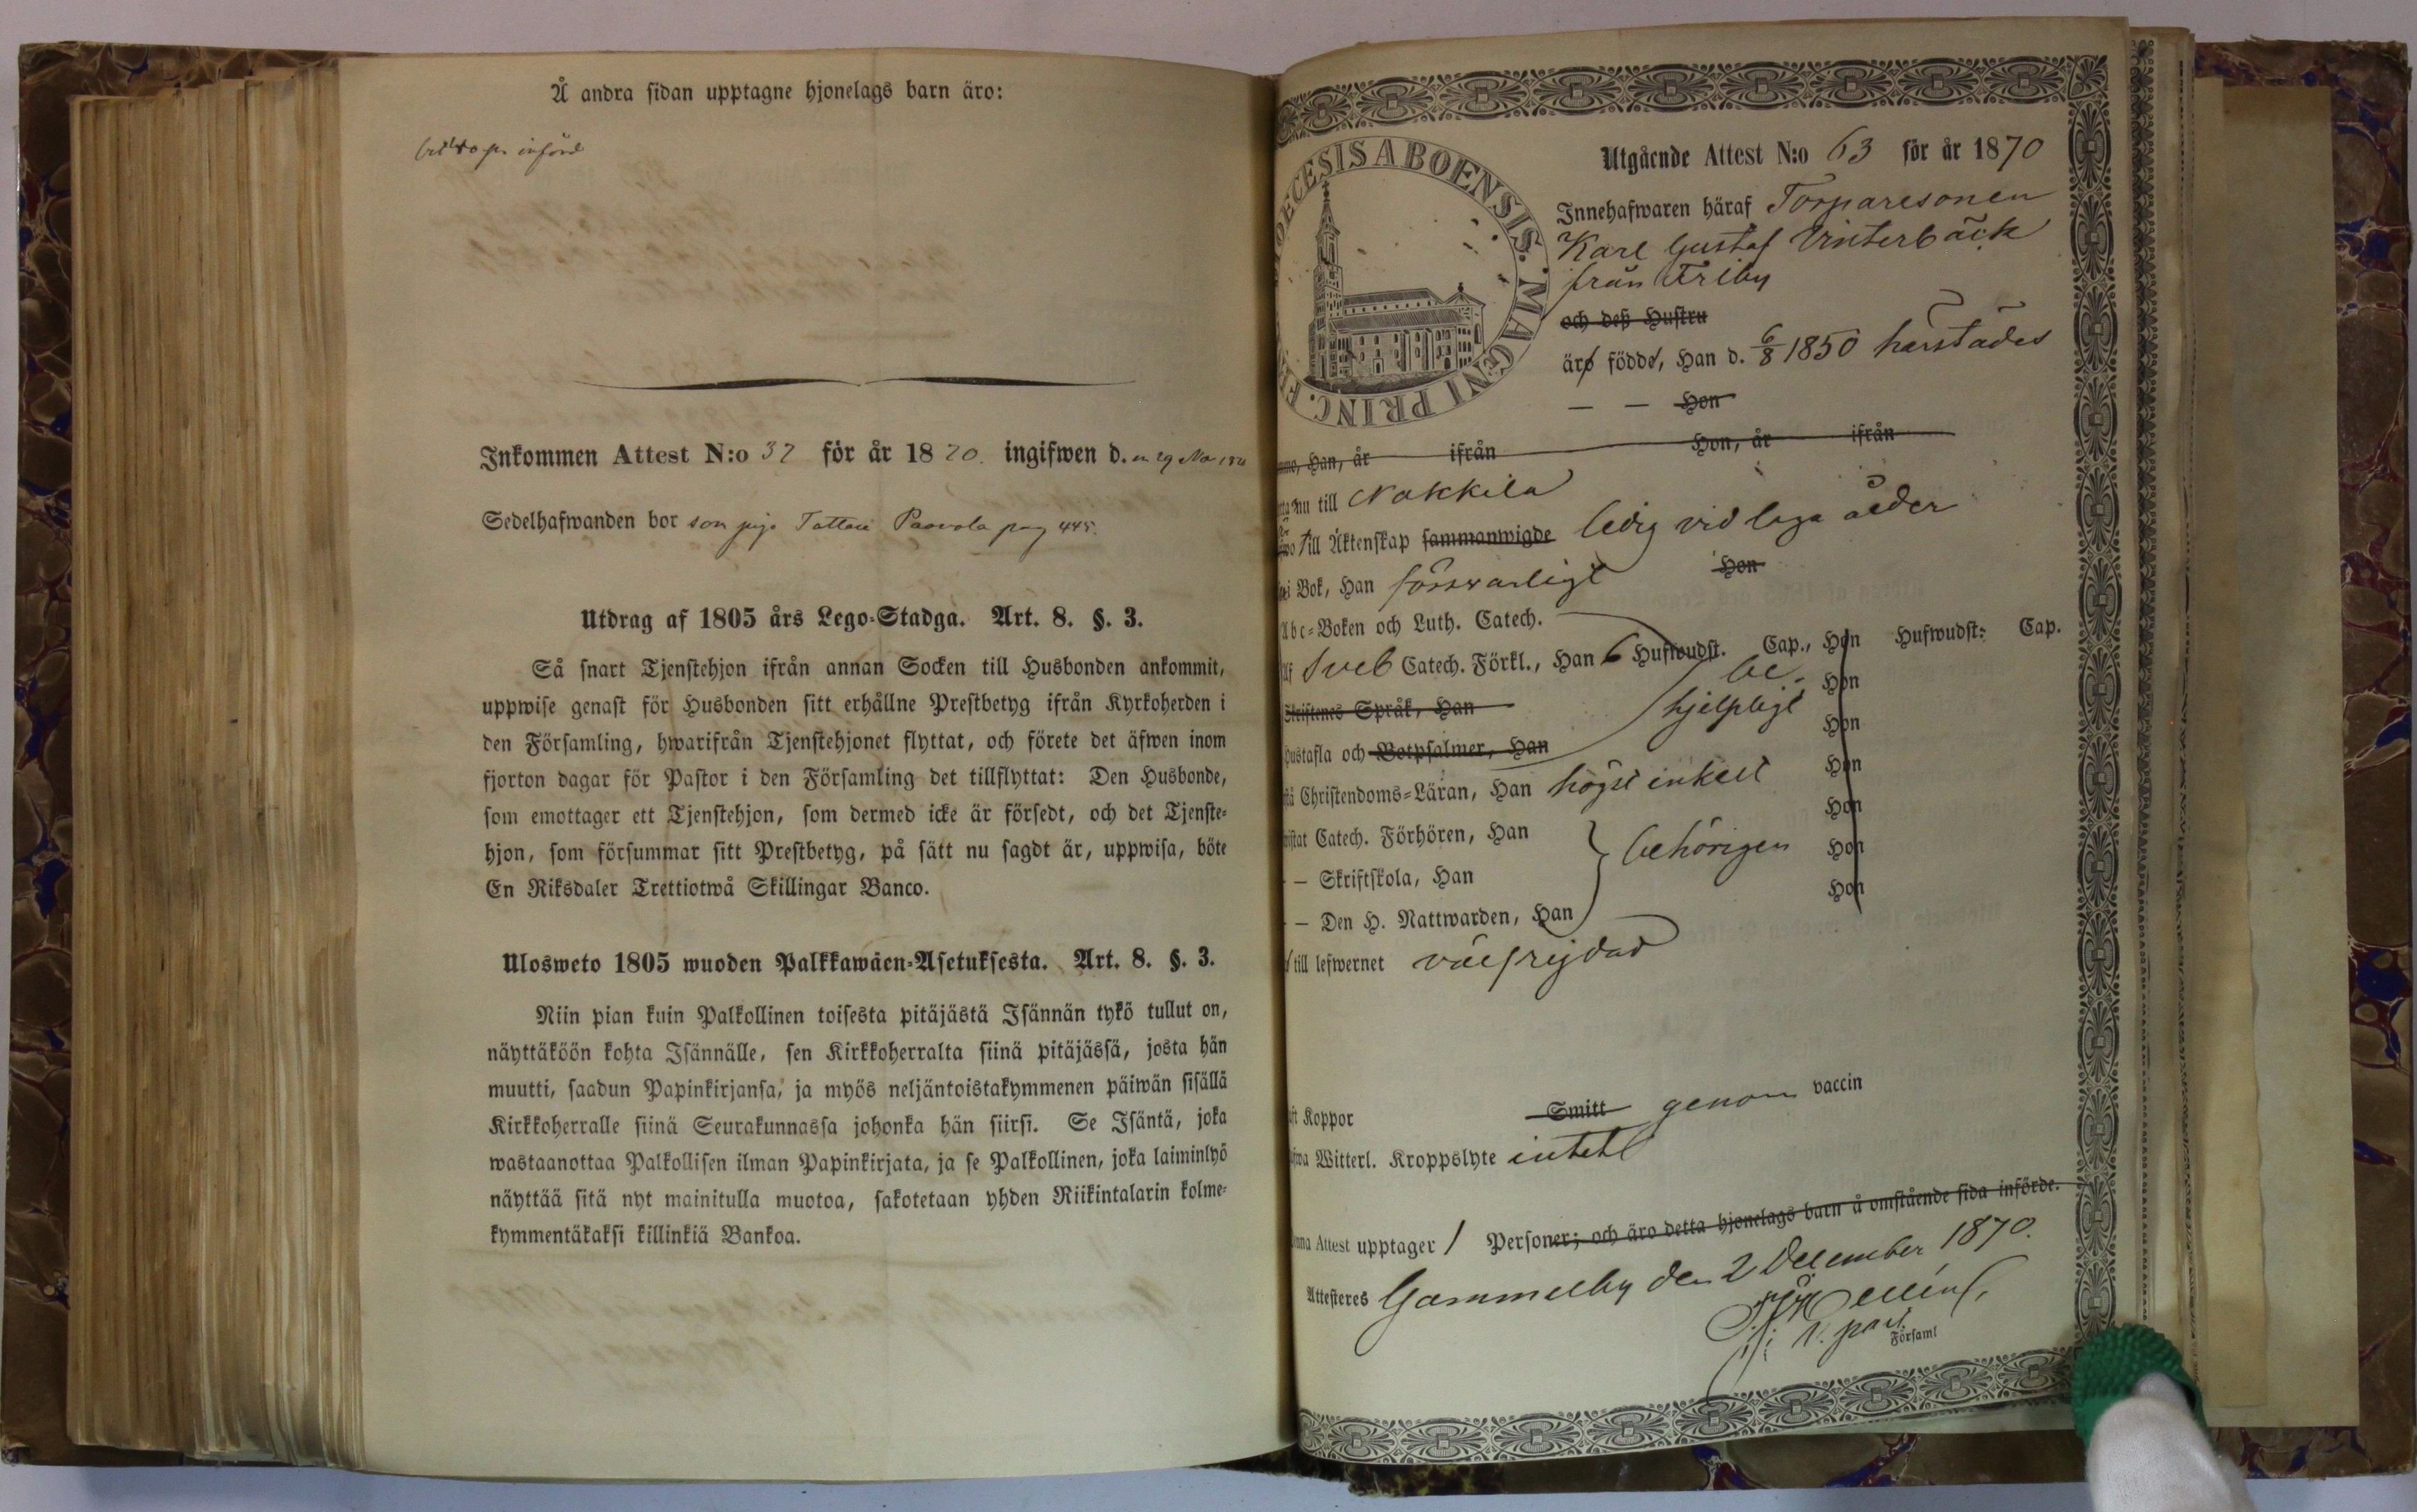 Å andra sidan upptagne hjonelags barn äro:
införd
Inkommen Attest N:o 37 för år 1870. ingifwen d. 29 Nov
Sedelhafwanden bor som piga Tattari Paavola pag 445.
Utdrag af 1805 års Lego-Stadga. Art. 8. §. 3.
Så snart Tjenstehjon ifrån annan Socken till Husbonden ankommit,
uppwise genast för Husbonden sitt erhållne Prestbetyg ifrån Kyrkoherden i
den Församling, hwarifrån Tjenstehjonet flyttat, och förete det äfwen inom
fjorton dagar för Pastor i den Församling det tillflyttat: Den Husbonde,
som emottager ett Tjenstehjon, som dermed icke är försedt, och det Tjenste-
hjon, som försummar sitt Prestbetyg, på sätt nu sagdt är, uppwisa, böte
En Riksdaler Trettiotwå Skillingar Banco.
Ulosweto 1805 wuoden Palkkawäen-Asetuksesta. Art. 8. §. 3.
Niin pian kuin Palkollinen toisesta pitäjästä Isännän tykö tullut on,
näyttäköön kohta Isännälle, sen Kirkkoherralta siinä pitäjässä, josta hän
muutti, saadun Papinkirjansa, ja myös neljäntoistakymmenen päiwän sisällä
Kirkkoherralle siinä Seurakunnassa johonka hän siirsi. Se Isäntä, joka
wastaanottaa Palkollisen ilman Papinkirjata, ja se Palkollinen, joka laiminlyö
näyttää sitä nyt mainitulla muotoa, sakotetaan yhden Riikintalarin kolme-
kymmentäkaksi killinkiä Bankoa.
OECESIS ABOENSIS. MAGNI PRINC. F
Utgående Attest N:o 63 för år 1870
Innehafwaren häraf Torparesonen
Karl Gustaf Vinterbäck
från Friby
och deß Hustru
äro födde, Han d. 6/8 1850 härstädes
— — Hon
Han, år ifrån Hon, år ifrån
nu till Nakkila
till Äktenskap sammanwigde ledig vid laga ålder
i Bok, Han försvarligt Hon
Abc-Boken och Luth. Catech.
Sveb Catech. Förkl., Han 6 Hufwudst. Cap., Hon Hufwudst: Cap.
be- Hon
Skriftenes Språk, Han hjelpligt Hon
Hustafla och Botpsalmer, Han Hon
Christendoms-Läran, Han högst enkelt Hon
Catech. Förhören, Han behörigen Hon
— Skriftskola, Han Hon
— Den H. Nattwarden, Han
till lefwernet välfrejdad
Koppor Smitt genom vaccin
Witterl. Kroppslyte intet
Attest upptager 1 Personer; och äro detta hjonelags barn å omstående sida införde.
Attesteres Gammelby den 2 December 1870.
v. past.
Församl